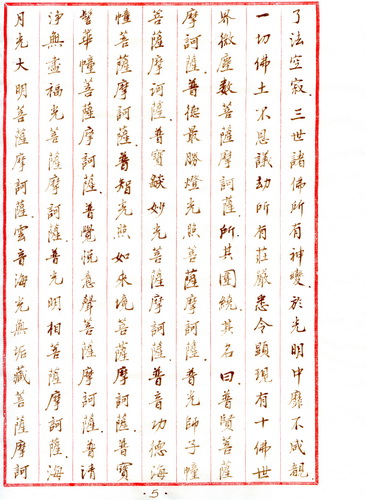 了法空寂.三世諸佛所有神變.於光明中靡不咸覩.
一切佛土不思議劫所有莊嚴悉令顯現有十佛世
界微塵數菩薩摩訶薩.所共圍繞.其名曰.普賢菩薩
摩訶薩.普德最勝燈光照菩薩摩訶薩.普光師子幢
菩薩摩訶薩.普寶燄妙光菩薩摩訶薩.普音功德海
幢菩薩摩訶薩.普智光照如來境菩薩摩訶薩.普寶
髻華幢菩薩摩訶薩.普覺悅意聲菩薩摩訶薩.普清
淨無盡福光菩薩摩訶薩.普光明相菩薩摩訶薩.海
月光大明菩薩摩訶薩.雲音海光無垢藏菩薩摩訶
·5·